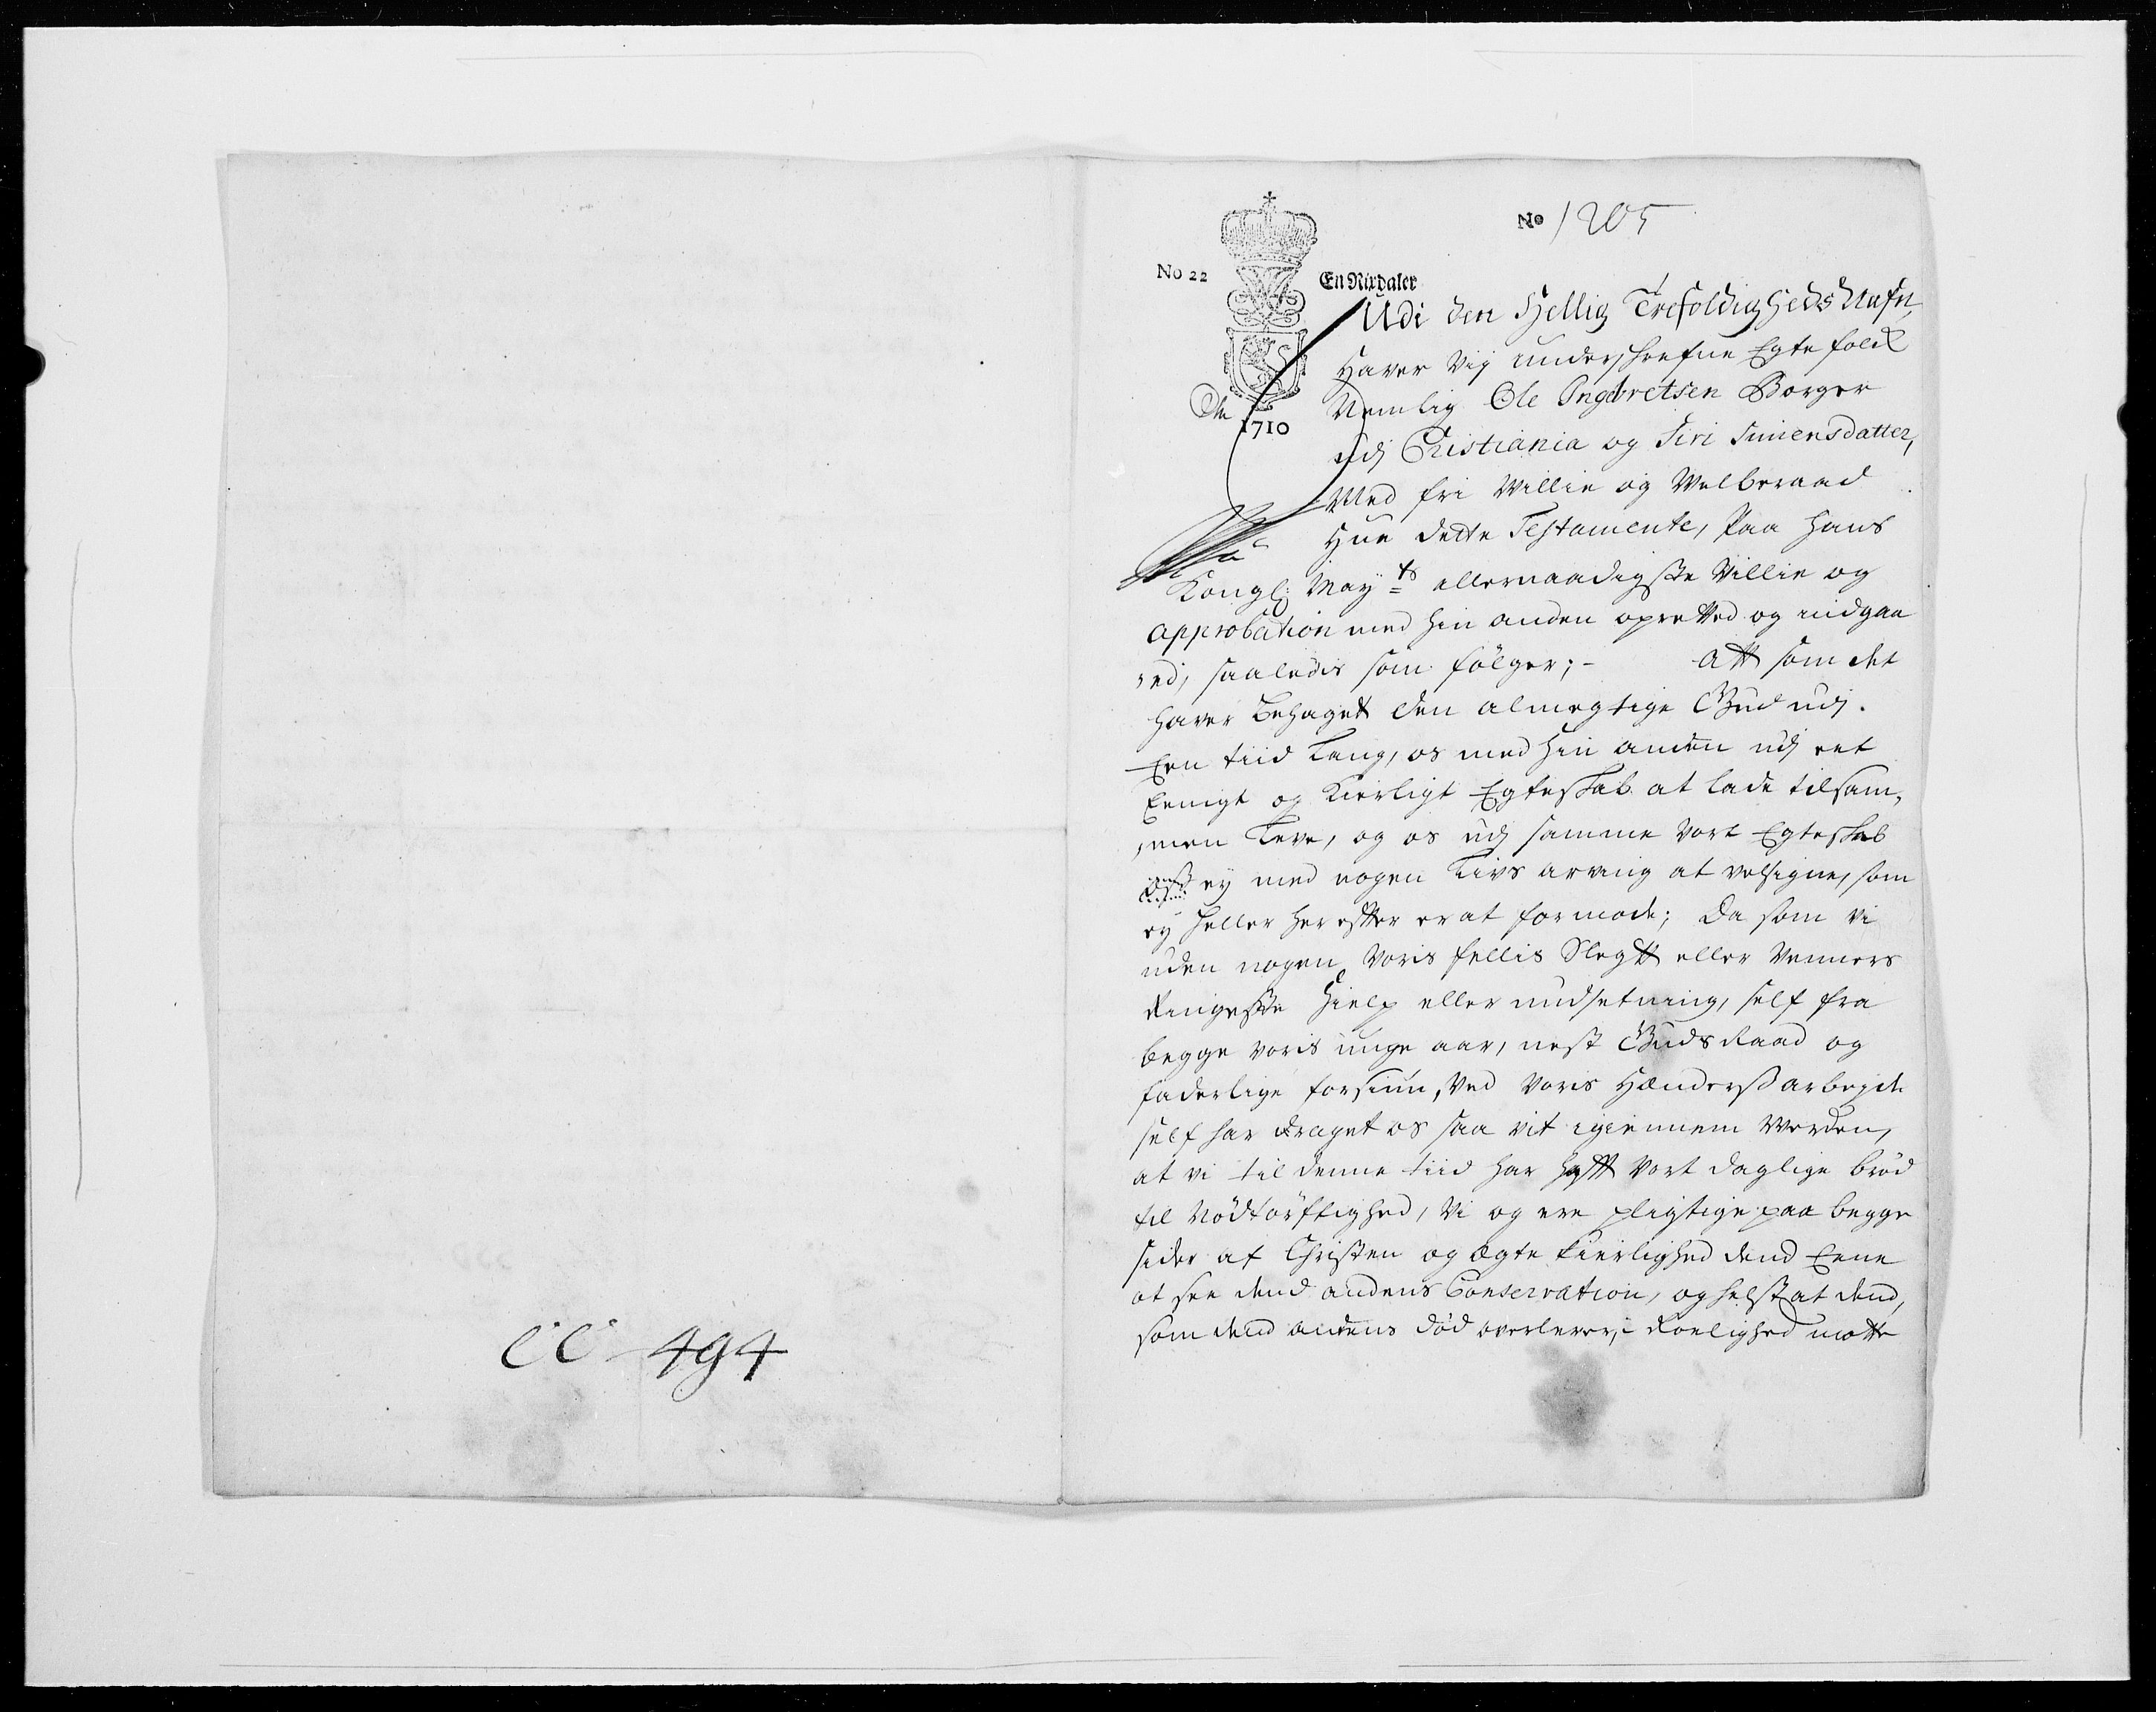 No 1205
No 22
En Rixdaler
1710
Udi den Hellig Trefoldigheds Nafn,
Haver Vij underschrefne Egte folck
Nemlig Ole Ingebretsen Borger
udj Christiania og Siri Simensdatter,
Med fri Willie og Welberaad
Hue dette Testamente, Paa Hans
Kongl: Mayts allernaadigste Villie og
Approbation med hin anden opretted og indgaa
,ed, saaledis som følger; - Att som det
haver behaget den almegtige Gud udj.
Een tiid lang, os med hin anden udj eet
Eenigt og Kierligt Egteskab at lade tilsam,
,men leve, og os udj samme vort Egteskab
ey med nogen Livs arving at velsigne, som
ey heller her efter er at formode; Da som vi
uden nogen Voris fellis Slegtt eller Venners
Ringeste Hielp eller undsetning, self fra
begge voris unge aar, nest Guds Raad og
faderlige forsiun, Ved Voris Hænderß arbejde
self har draget os saa vit igiennem Verden,
at vi til denne tiid har hafft vort daglige brød
til Nødtørftighed, Vi og ere pligtige paa begge
sider af Christen og Egte Kierlighed dend Eene
at see dend andens Conservation, og helst at dend,
som dend andens død overlever, i Roelighed motte
CC 494